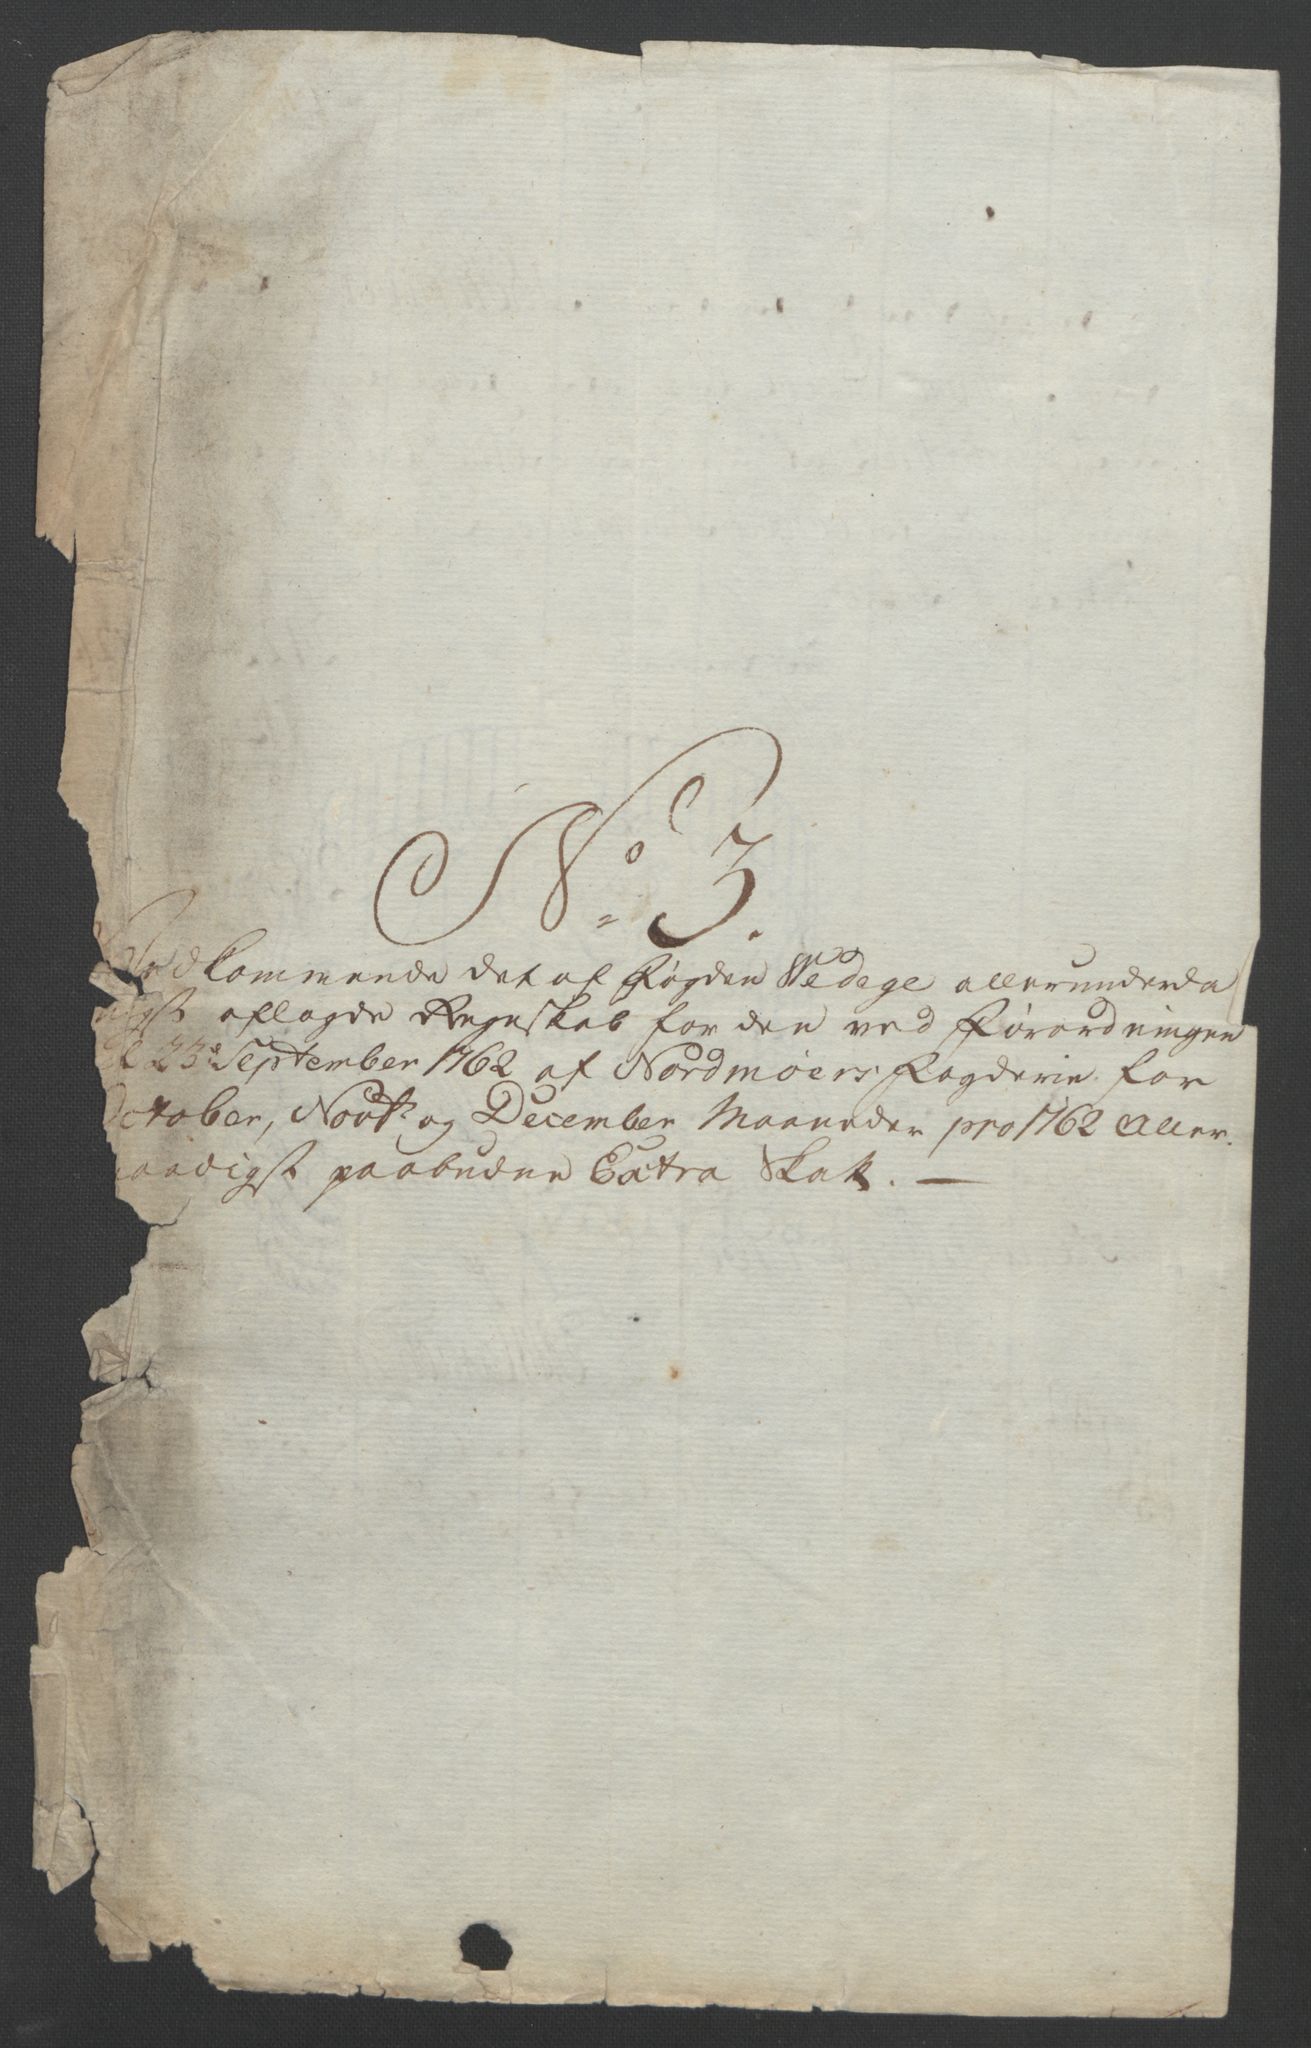 No: 3.
Vedkommende det af Fogden Wedege allerunderda
nigst aflagde Regnskab for den ved Forordningen
23de September 1762 af Nordmøers Fogderie for
October, Novbr og December Maaneder pro 1762 Aller¬
naadigst paabudne Extra Skatt. —